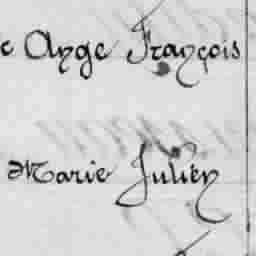 e Ange François
Marie Julien